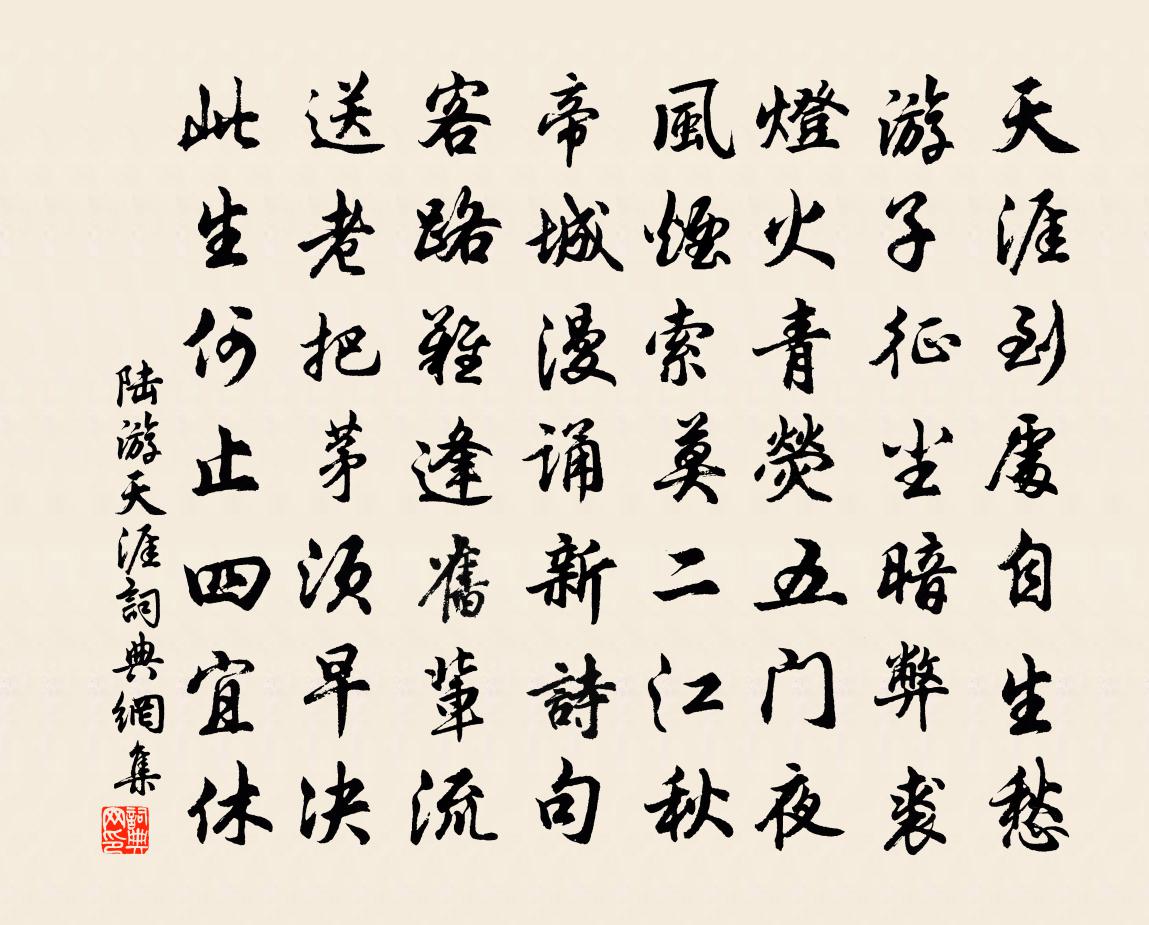 天涯到處自生愁
游子征尘暗弊裘
燈火青熒五门夜
風煙索莫二江秋
帝城漫诵新詩句
客路難逢舊輩流
送老把茅须早决
此生何止四宜休
陆游天涯詞典網集
詞典网印